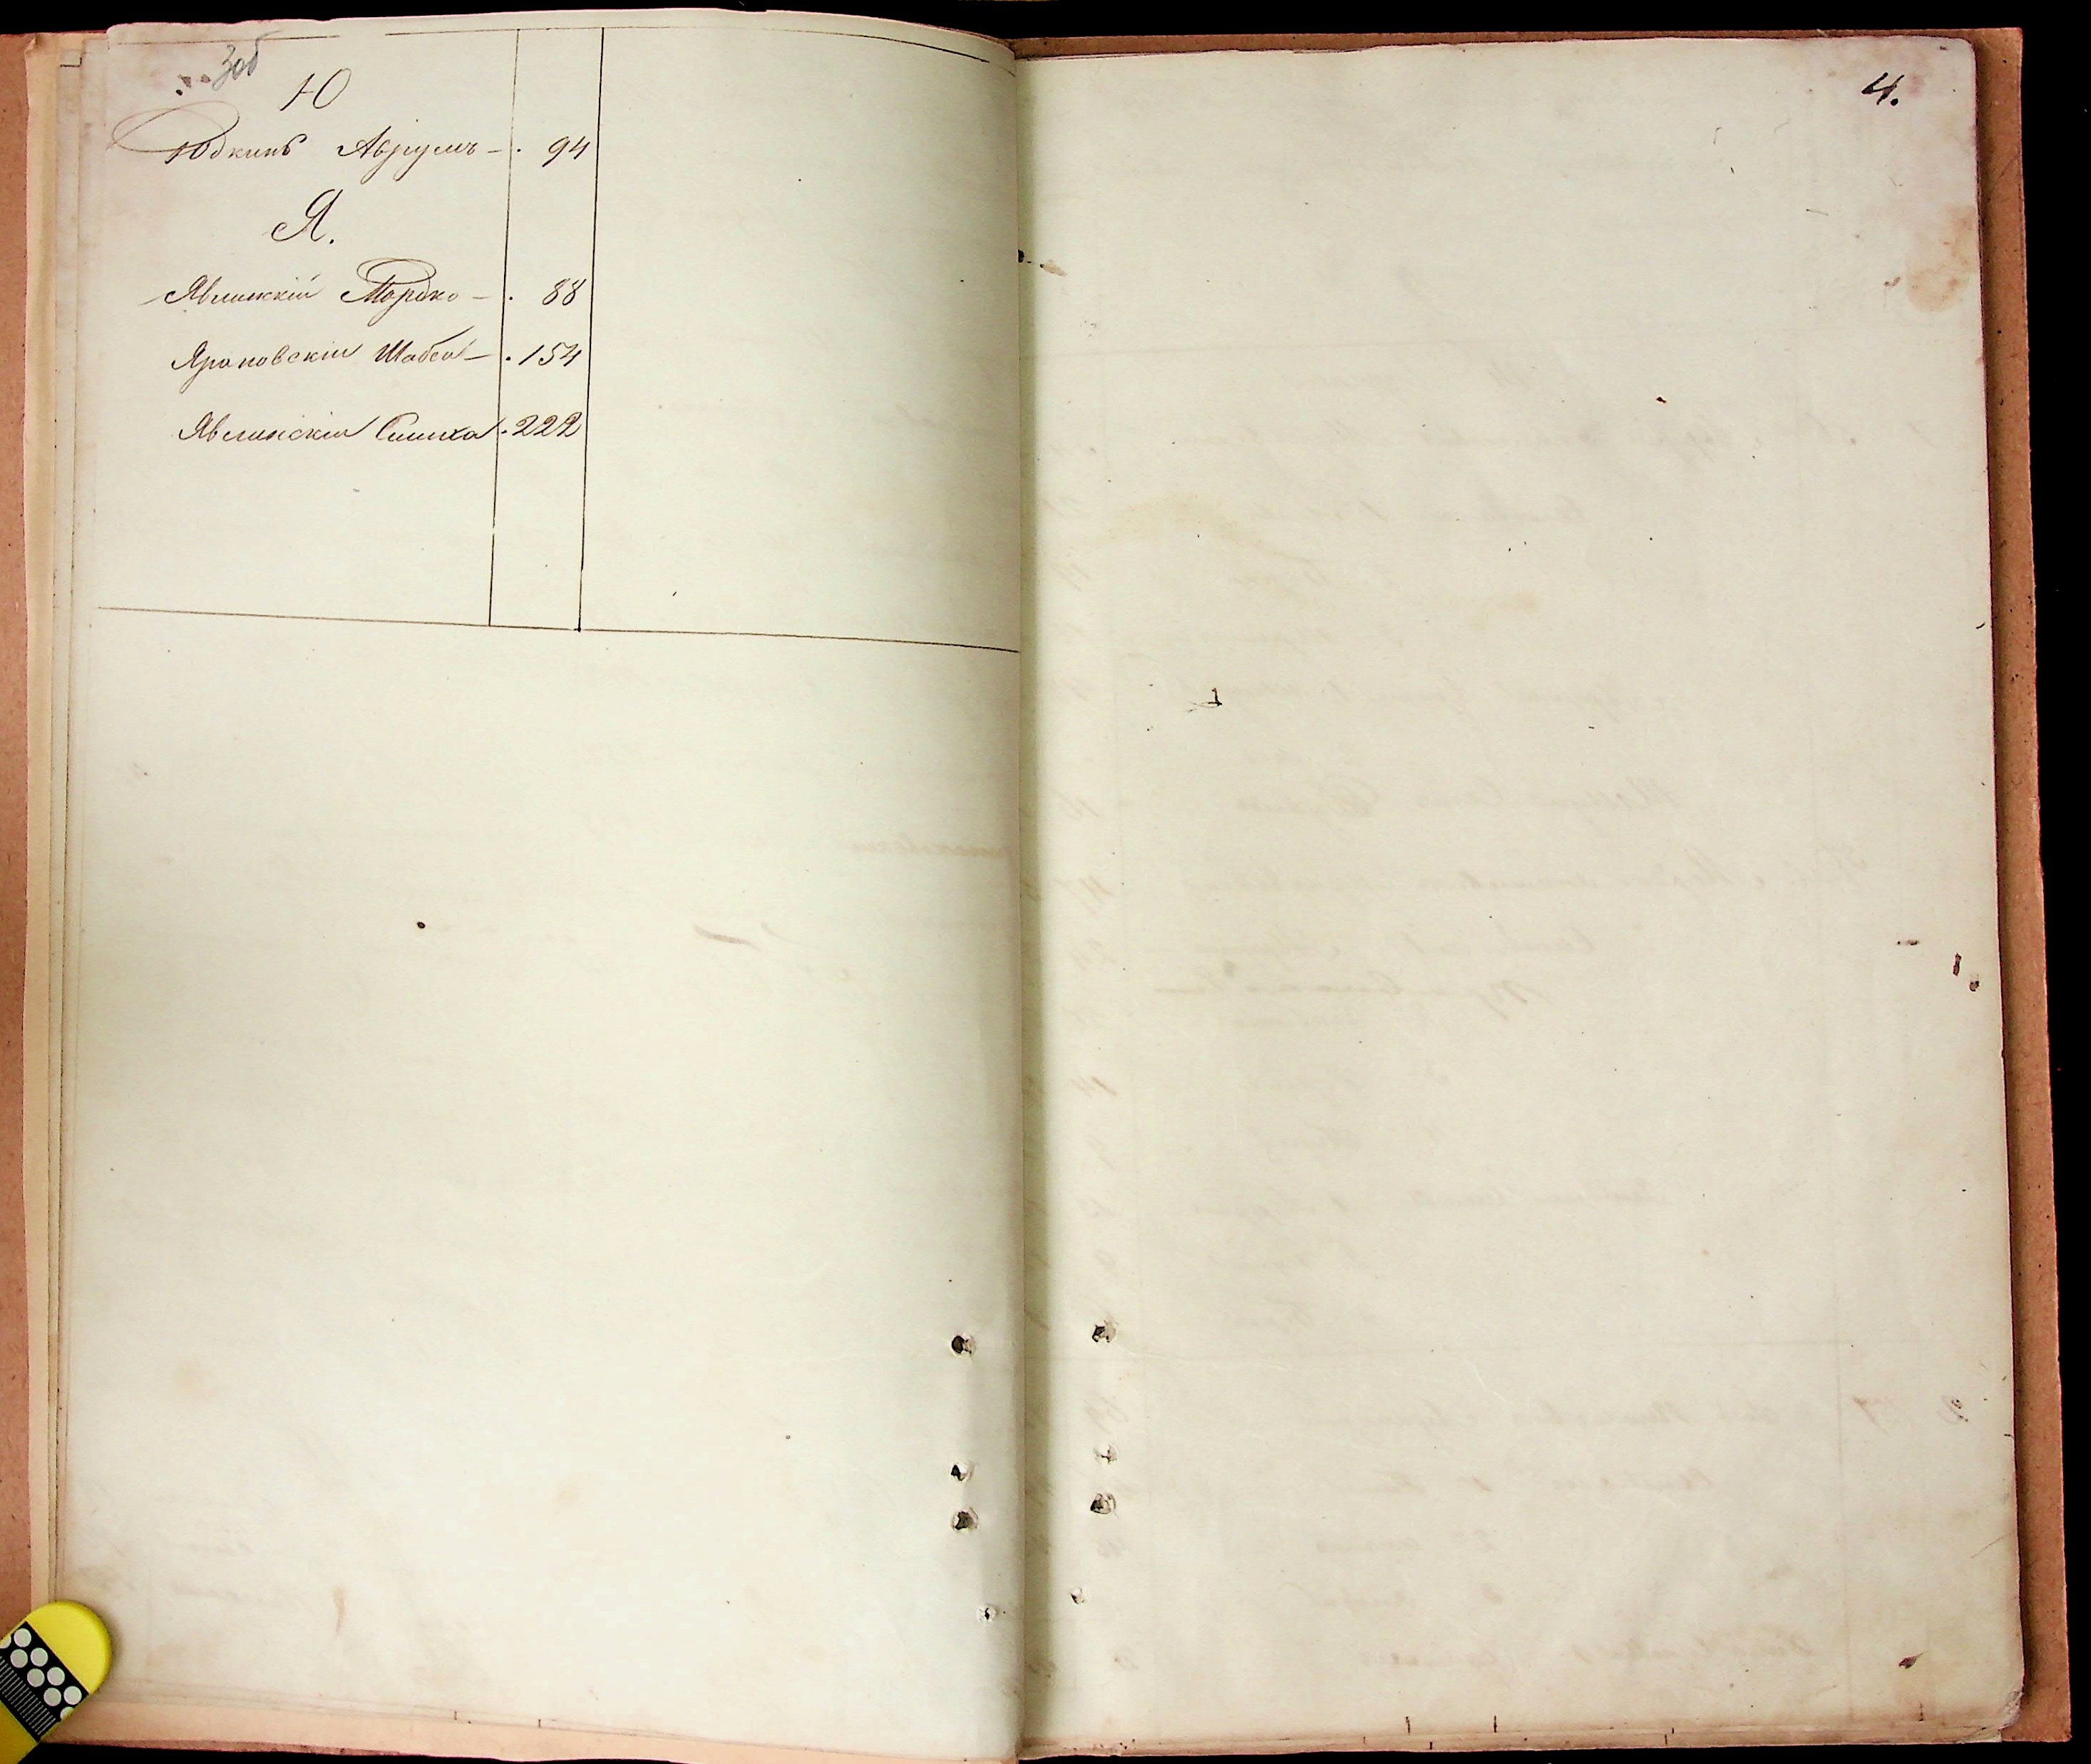 3об
Ю
Юдкинъ Аврумъ - . 94
Я.
Явлинскій Мордко - . 88
Яроновскій Шабса - . 154
Явлинскій Симха . 222
4.